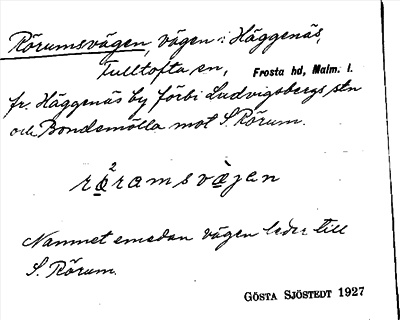 Rörumsvägen, vägen i Häggenäs,
Fulltofta sn, Frosta hd, Malm. l.
fr. Häggenäs by förbi Ludvigsbergs stn
och Bondemölla mot S. Rörum.
rö²ramsvàjen
Namnet emedan vägen leder till
S. Rörum.
GÖSTA SJÖSTEDT 1927